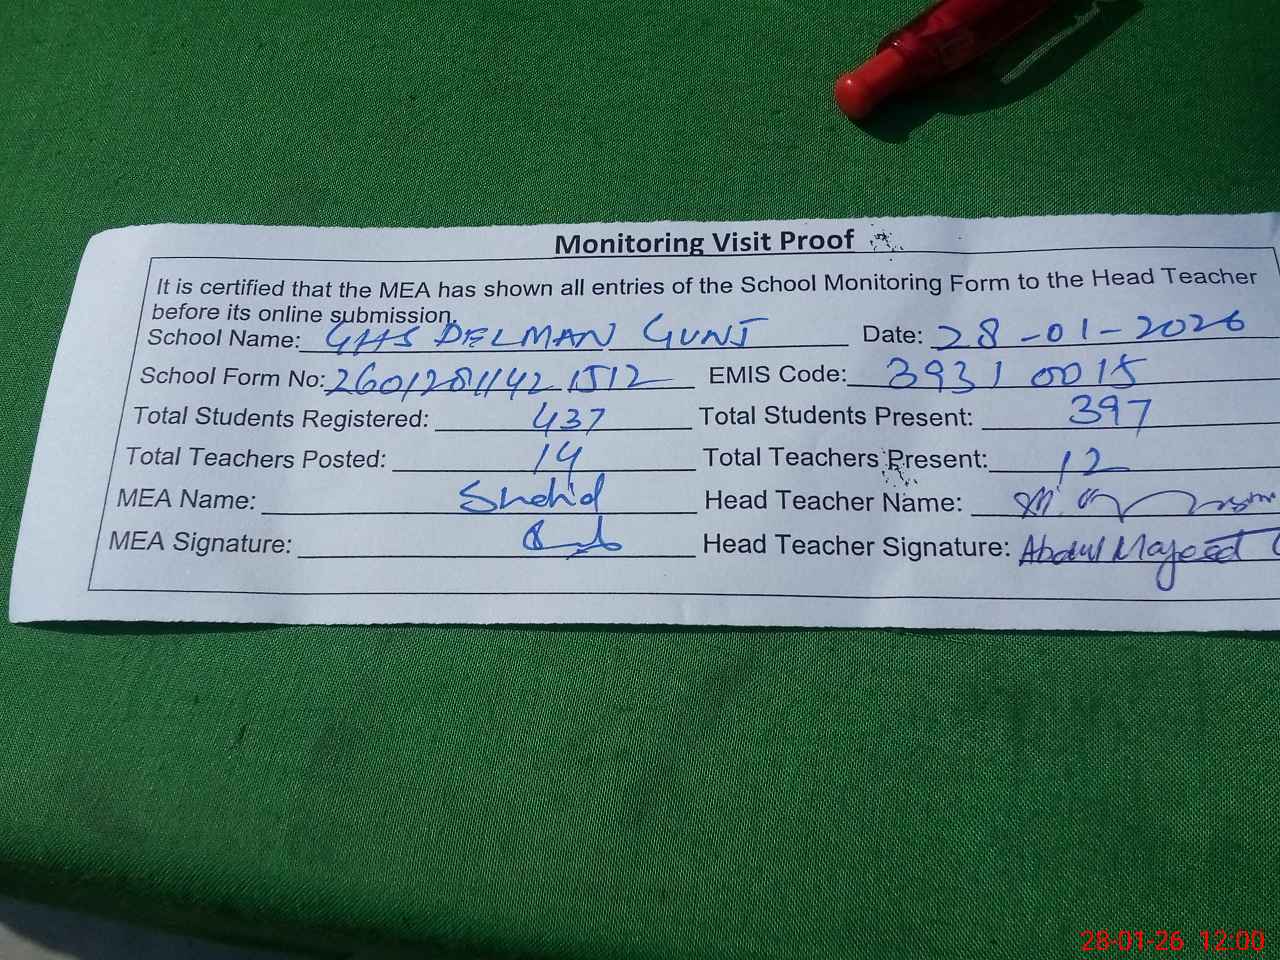 Monitoring Visit Proof
It is certified that the MEA has shown all entries of the School Monitoring Form to the Head Teacher
before its online submission.
School Name: GHS DELMAN GUNJ Date: 28-01-2026
School Form No: 2601281142 1512 EMIS Code: 39310015
Total Students Registered: 437 Total Students Present: 397
Total Teachers Posted: 14 Total Teachers Present: 12
MEA Name: Shahid Head Teacher Name:
MEA Signature: Head Teacher Signature: Abdul Majeed
28-01-26 12:00